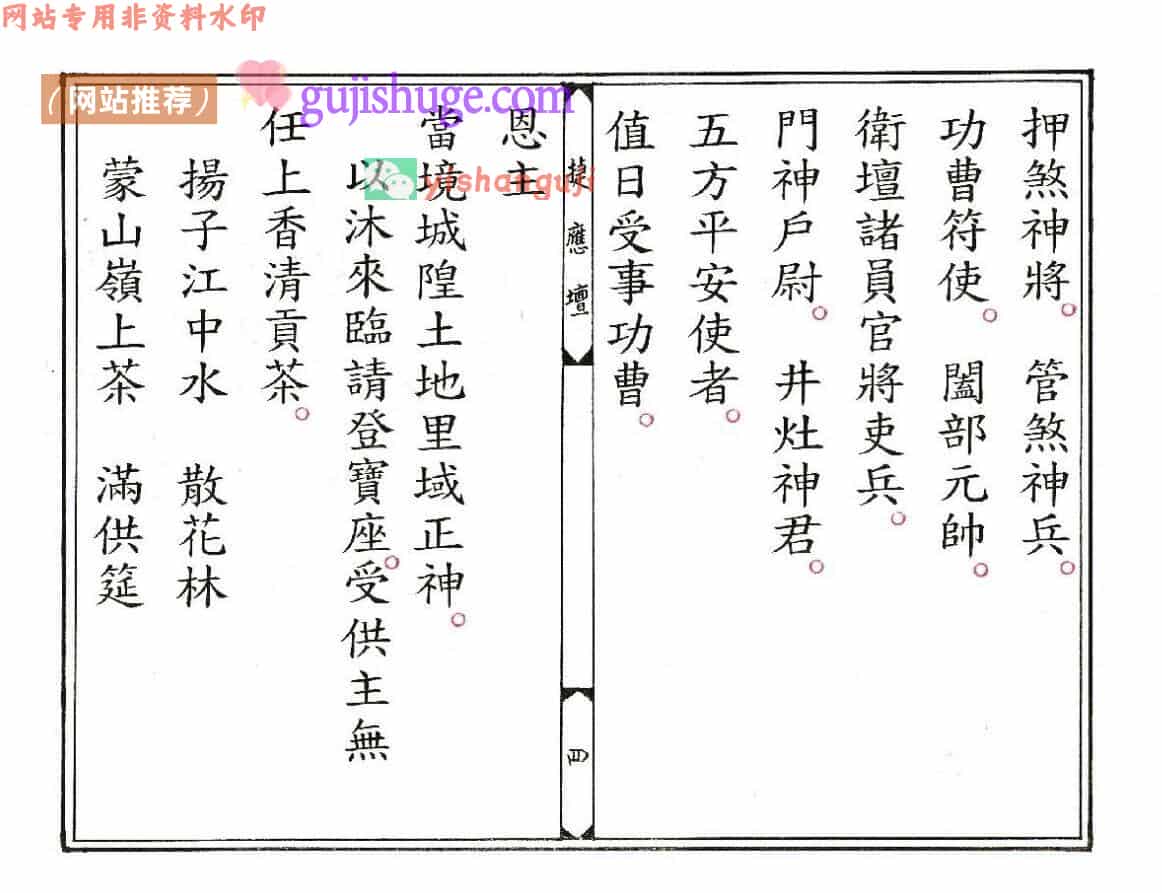 网站专用非资料水印
（网站推荐）
gujishuge.com
yishanguji
押煞神將。 管煞神兵。
功曹符使。 闔部元帥。
衛壇諸員官將吏兵。
門神戶尉。 井灶神君。
五方平安使者。
值日受事功曹。
應壇
四
恩主
當境城隍土地里域正神。
以沐來臨請登寶座。受供主無
任上香清貢茶。
揚子江中水 散花林
蒙山嶺上茶 滿供筵